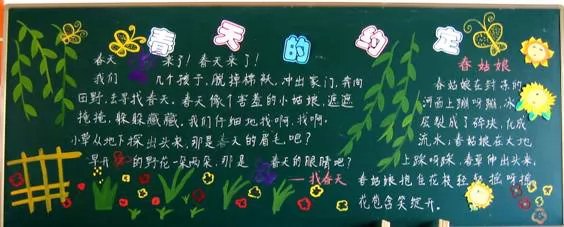 春天的约定
春天 来了！春天来了！
我们 几个孩子，脱掉棉袄，冲出家门，奔向
田野，去寻找春天。春天像个害羞的小姑娘，遮遮
掩掩，躲躲藏藏。我们仔细地找啊，找啊。
小草从地下探出头来，那是春天的眉毛吧？
早开 的野花一朵两朵，那是 春天的眼睛吧？
——找春天
春姑娘
春姑娘在封冻的
河面上蹦呀蹦，冰
层裂成了碎块，化成
流水；春姑娘在大地
上踩呀踩，春草伸出头来，
春姑娘抱住花枝轻轻摇呀摇
花包含笑绽开。